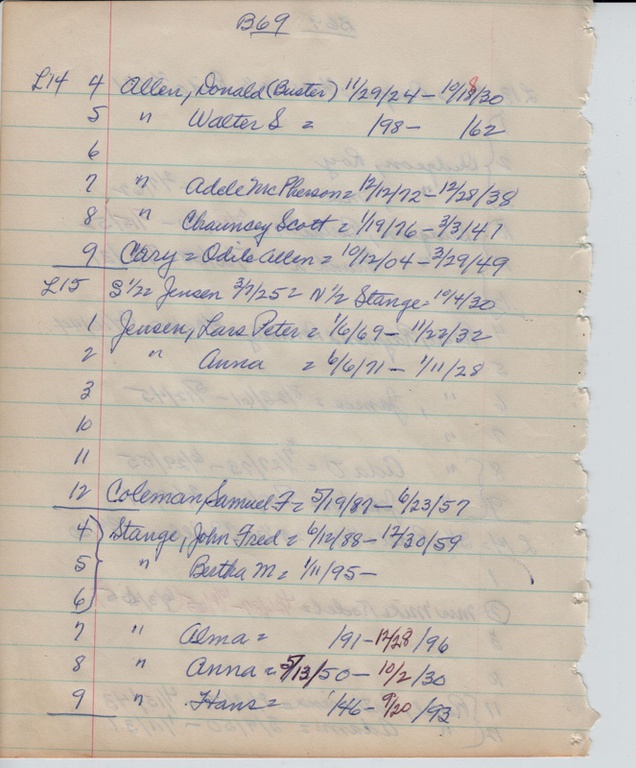 B69
L14 4 Allen, Donald (Buster) 11/29/24 - 10/18/30
5 " Walter S = /98 - /62
6
7 " Adele McPherson = 12/12/72 - 12/28/38
8 " Chauncey Scott = 1/19/76 - 3/3/47
9 Cary = Odile Allen = 10/12/04 - 3/29/49
L15 S 1/2 = Jensen 3/7/25 = N 1/2 Stange = 10/4/30
1 Jensen, Lars Peter = 1/6/69 - 11/22/32
2 " Anna = 6/6/71 - 1/11/28
3
10
11
12 Coleman, Samuel F = 5/19/87 - 6/23/57
4 Stange, John Fred = 6/12/88 - 12/30/59
5 " Bertha M = 1/11/95 -
6
7 " Alma = /91 - 12/28/96
8 " Anna = 5/13/50 - 10/2/30
9 " Hans = /46 - 9/20/93